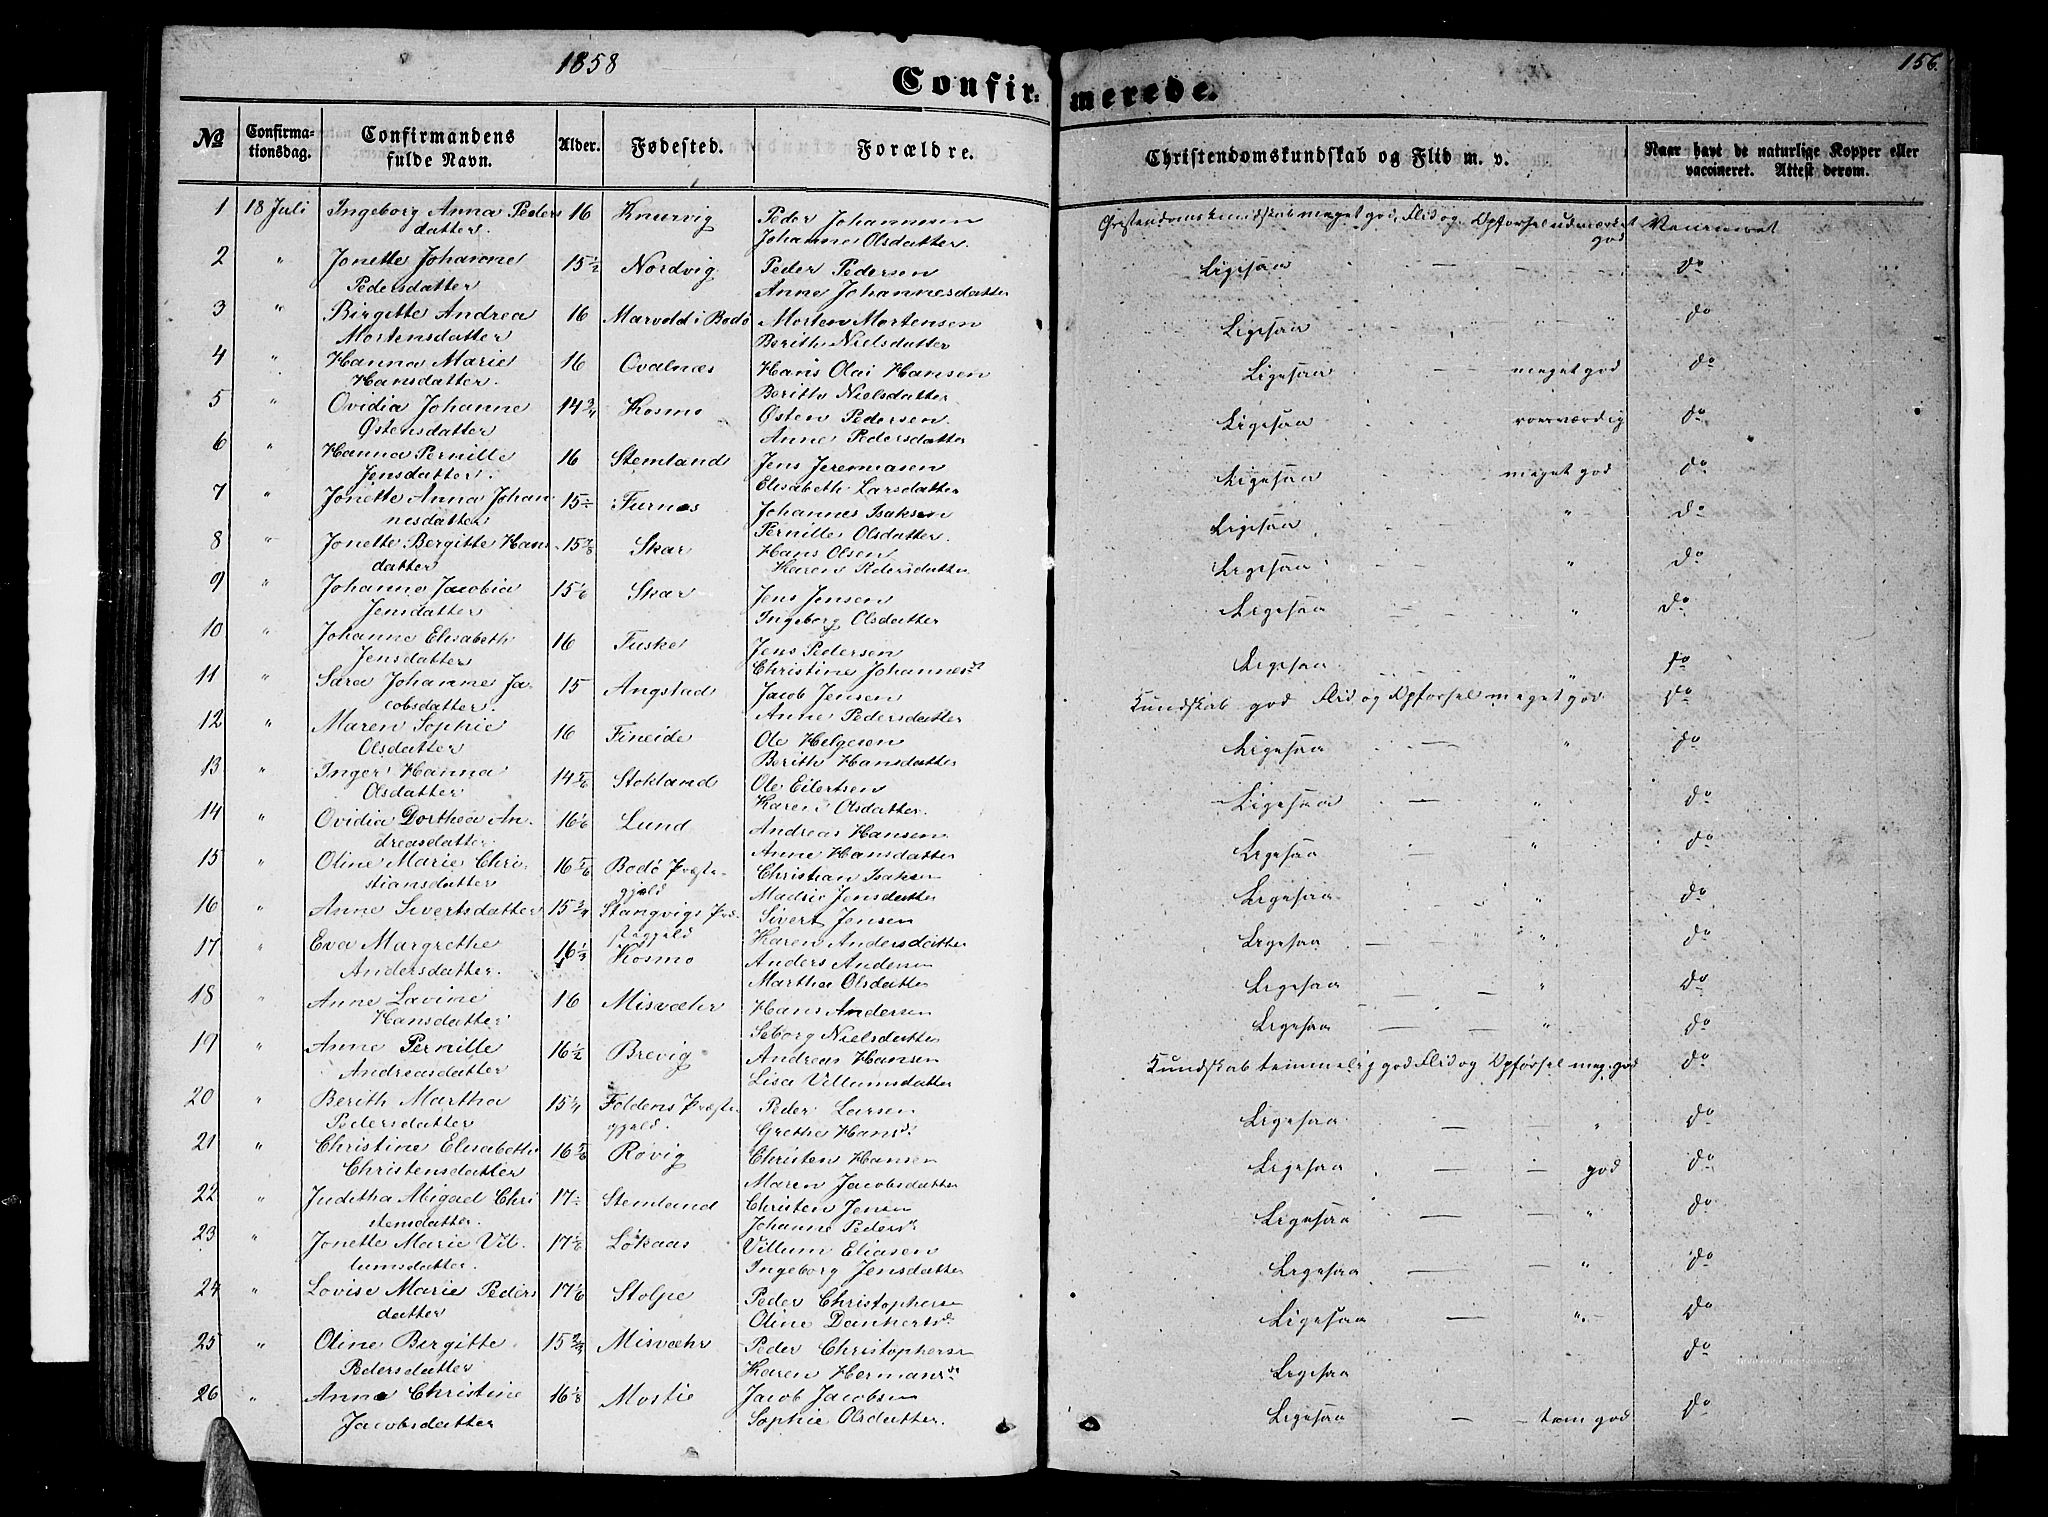 1858
156.
Confirmerede.
No
Confirmationsdag.
Confirmandens fulde Navn.
Alder.
Fødested.
Forældre.
Christendomskundskab og Flid m. v.
Naar havt de naturlige Kopper eller vaccineret. Attest derom.
1 18 Juli Ingeborg Anna Peders 16 Knærvig Peder Johannesen Christendomskundskab meget god, Flid og Opførsel udmærket Vaccineret
datter. Johanna Olsdatter. god
2 " Jonette Johanne 15½ Nordvig Peder Pedersen Ligesaa — — do
Pedersdatter Anne Johannesdatter
3 " Birgitte Andrea 16 Marvold i Bodø Morten Mortensen Ligesaa " do
Mortensdatter Berith Nielsdatter
4 " Hanna Marie 16 Ovalnæs Hans Olai Hansen Ligesaa meget god do
Hansdatter. Beritha Nielsdatter
5 " Ovidia Johanne 14¾ Kosmo Østen Pedersen Ligesaa roesværdig do
Østensdatter Anne Pedersdatter
6 " Hanna Pernille 16 Stemland Jens Jeremiasen Ligesaa meget god do
Jensdatter. Elisabeth Larsdatter
7 " Jonette Anna Johan 15½ Furnes Johannes Isaksen Ligesaa " do
nesdatter Pernille Olsdatter.
8 " Jonette Bergitte Hans 15⅞ Skar Hans Olsen Ligesaa " do
datter Karen Pedersdatter
9 " Johanne Jacobia 15⅙ Skar Jens Jensen Ligesaa — " do
Jensdatter Ingeborg Olsdatter
10 " Johanne Elisabeth 16 Fuske Jens Pedersen Ligesaa " do
Jensdatter Christine Johannesd
11 " Sara Johanne Ja- 15 Angstad Jacob Jensen Kundskab god Flid og Opførsel meget god do
cobsdatter. Anne Pedersdatter
12 " Maren Sophie 16 Fineide Ole Helgesen Ligesaa — " do
Olsdatter Berith Hansdatter
13 " Inger Hanna 14⅚ Stokland Ole Eilertsen Ligesaa — " do
Olsdatter Karen Olsdatter.
14 " Ovidia Dorthea An- 16⅙ Lund Andreas Hansen Ligesaa " do
dreasdatter. Anne Hansdatter
15 " Oline Marie Chri- 16⅚ Bodø Præste- Christian Isaksen Ligesaa " do
stiansdatter gjeld Madsie Jensdatter
16 " Anne Sivertsdatter 15¾ Stangvigs Præ Sivert Jensen Ligesaa — " do
stegjeld Karen Andersdatter
17 " Eva Margrethe 16⅓ Kosmo Anders Andersen Ligesaa — — " do
Andersdatter. Martha Olsdatter
18 " Anne Lavine 16 Misvæhr Hans Andersen Ligesaa — — " do
Hansdatter Seborg Nielsdatter
19 " Anne Pernille 16½ Brevig Andreas Hansen Kundskab temmelig god Flid og Opførsel meg. god do
Andreasdatter Lisa Villumsdatter
20 " Berith Martha 15¼ Foldens Præste- Peder Larsen Ligesaa — — " do
Pedersdatter gjeld. Grethe Hansd.
21 " Christine Elisabeth 16⅚ Røvig Christen Hansen Ligesaa — — god do
Christensdatter Maren Jacobsdatter
22 " Juditha Abigael Chri 17½ Stemland Christen Jensen Ligesaa — — " do
stensdatter. Johanne Pedersd.
23 " Jonette Marie Vil- 17⅙ Løkaas Villum Eliasen Ligesaa — — " do
lumsdatter. Ingeborg Jensdatter
24 " Lovise Marie Peders 17⅙ Stolpe Peder Christophersen Ligesaa — " do
datter Oline Dankertsd.
25 " Oline Birgitte 15⅔ Misvæhr Peder Christophersen Ligesaa do
Pedersdatter Karen Hermansd.
26 " Anne Christine 16⅛ Mostie Jacob Jacobsen Ligesaa — — tem god do
Jacobsdatter Sophie Olsdatter.